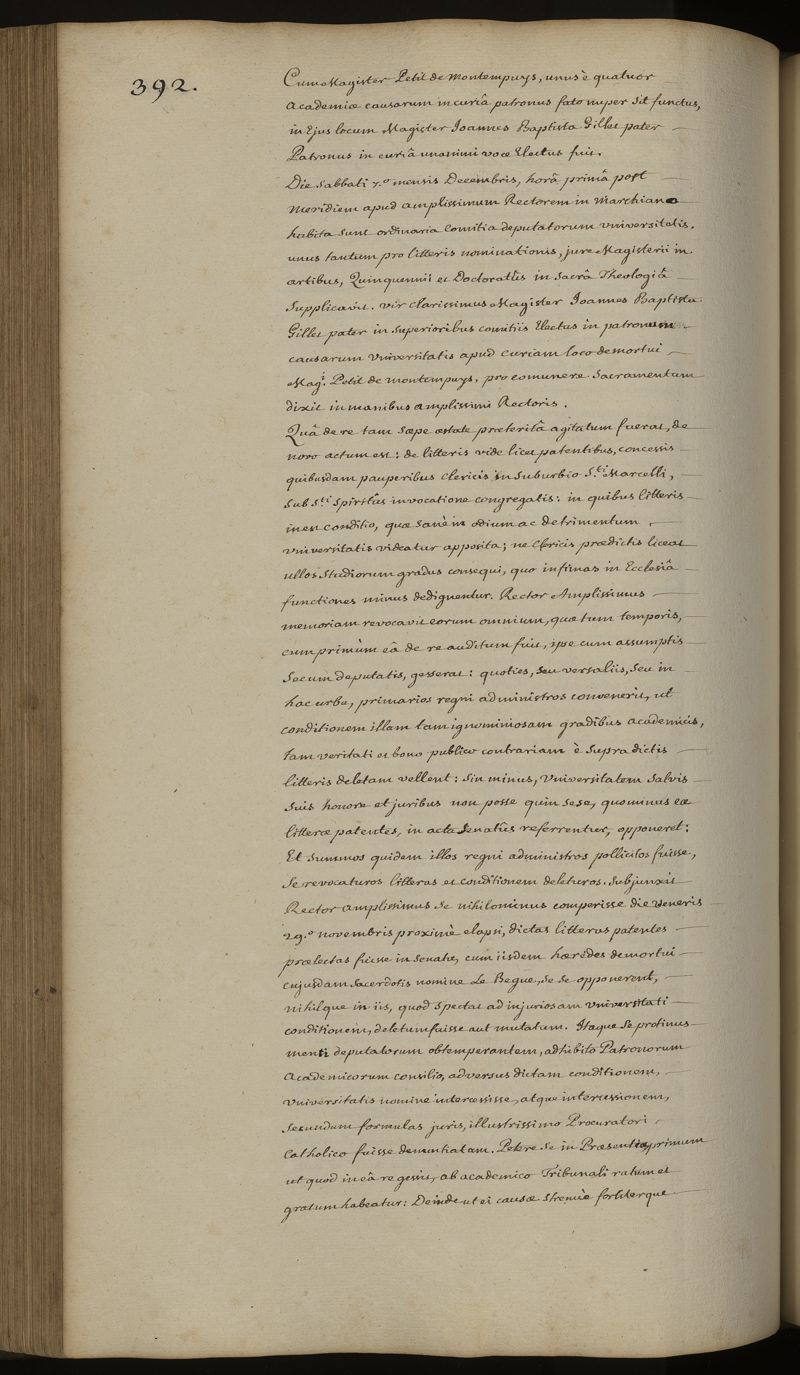 392.
Cum Magister Petit de Montempuys, unus è quatuor
Academiæ causarum in curiâ patronus fato nuper sit functus,
in Ejus locum Magister Joannes Baptista Gillet pater
Patronus in curiâ unanimi voce Electus fuit.
Die Sabbati 7.º mensis Decembris, horâ primâ post
meridiem apud amplissimum Rectorem in Marchiano
habita sunt ordinaria Comitia deputatorum universitatis.
unus tantum pro litteris nominationis, jure Magisterii in
artibus, Quinquennii et Doctoratûs in Sacrâ Theologiâ
Supplicavit. vir clarissimus Magister Joannes Baptista
Gillet pater in Superioribus comitiis Electus in patronum
causarum Universitatis apud curiam loco demortui
Mag.i Petit de montempuys, pro eo munere Sacramentum
dixit in manibus amplissimi Rectoris.
Quâ de re tam sæpe æstate præteritâ agitatum fuerat, de
novo actum est: de litteris videlicet patentibus, concessis
quibusdam pauperibus clericis in Suburbio S.ti Marcelli,
Sub S.ti Spiritûs invocatione congregatis: in quibus litteris
inest conditio, quæ sanè in odium ac detrimentum
universitatis videatur apposita; ne Clericis prædictis liceat
ullos Studiorum gradus consequi, quo infimas in Ecclesiâ
functiones minus dedignentur. Rector Amplissimus
memoriam revocavit eorum omnium, quæ tum temporis,
cum primùm eâ de re auditum fuit, ipse cum assumptis
Secum deputatis, gesserat: quoties, seu versaliis, seu in
hac urbe, primarios regni administros convenerit, ut
conditionem illam tam ignominiosam gradibus academicis,
tam veritati et bono publico contrariam è Supra dictis
litteris deletam vellent: Sin minus, Universitatem Salvis
Suis honore et juribus non posse quin sese, quominus eæ
litteræ patentes, in acta Senatûs referrentur, opponeret:
Et Summos quidem illos regni administros pollicitos fuisse,
Se revocaturos litteras et conditionem deleturos. Subjunxit
Rector Amplissimus se nihilominus comperisse die Veneris
29.º novembris proximè elapsi, dictas litteras patentes
prælectas fuisse in Senatu, cum iisdem hærêdes demortui
cujusdam Sacerdotis nomine Le Begue, se se opponerent,
nihilque in iis, quod spectat ad injuriosam Universitati
conditionem, deletum fuisse aut mutatum. Itaque se protinus
menti deputatorum obtemperantem, adhibito Patronorum
Academicorum consilio, adversus dictam conditionem,
Universitatis nomine intercessisse, atque intercessionem,
Secundum formulas juris, illustrissimo Procuratori
Catholico fuisse denuntiatam. Petere se in Præsentia primum
ut quod in eâ re gessit, ab academico Tribunali ratum et
gratum habeatur: Deinde ut ei causæ strenuè fortiterque